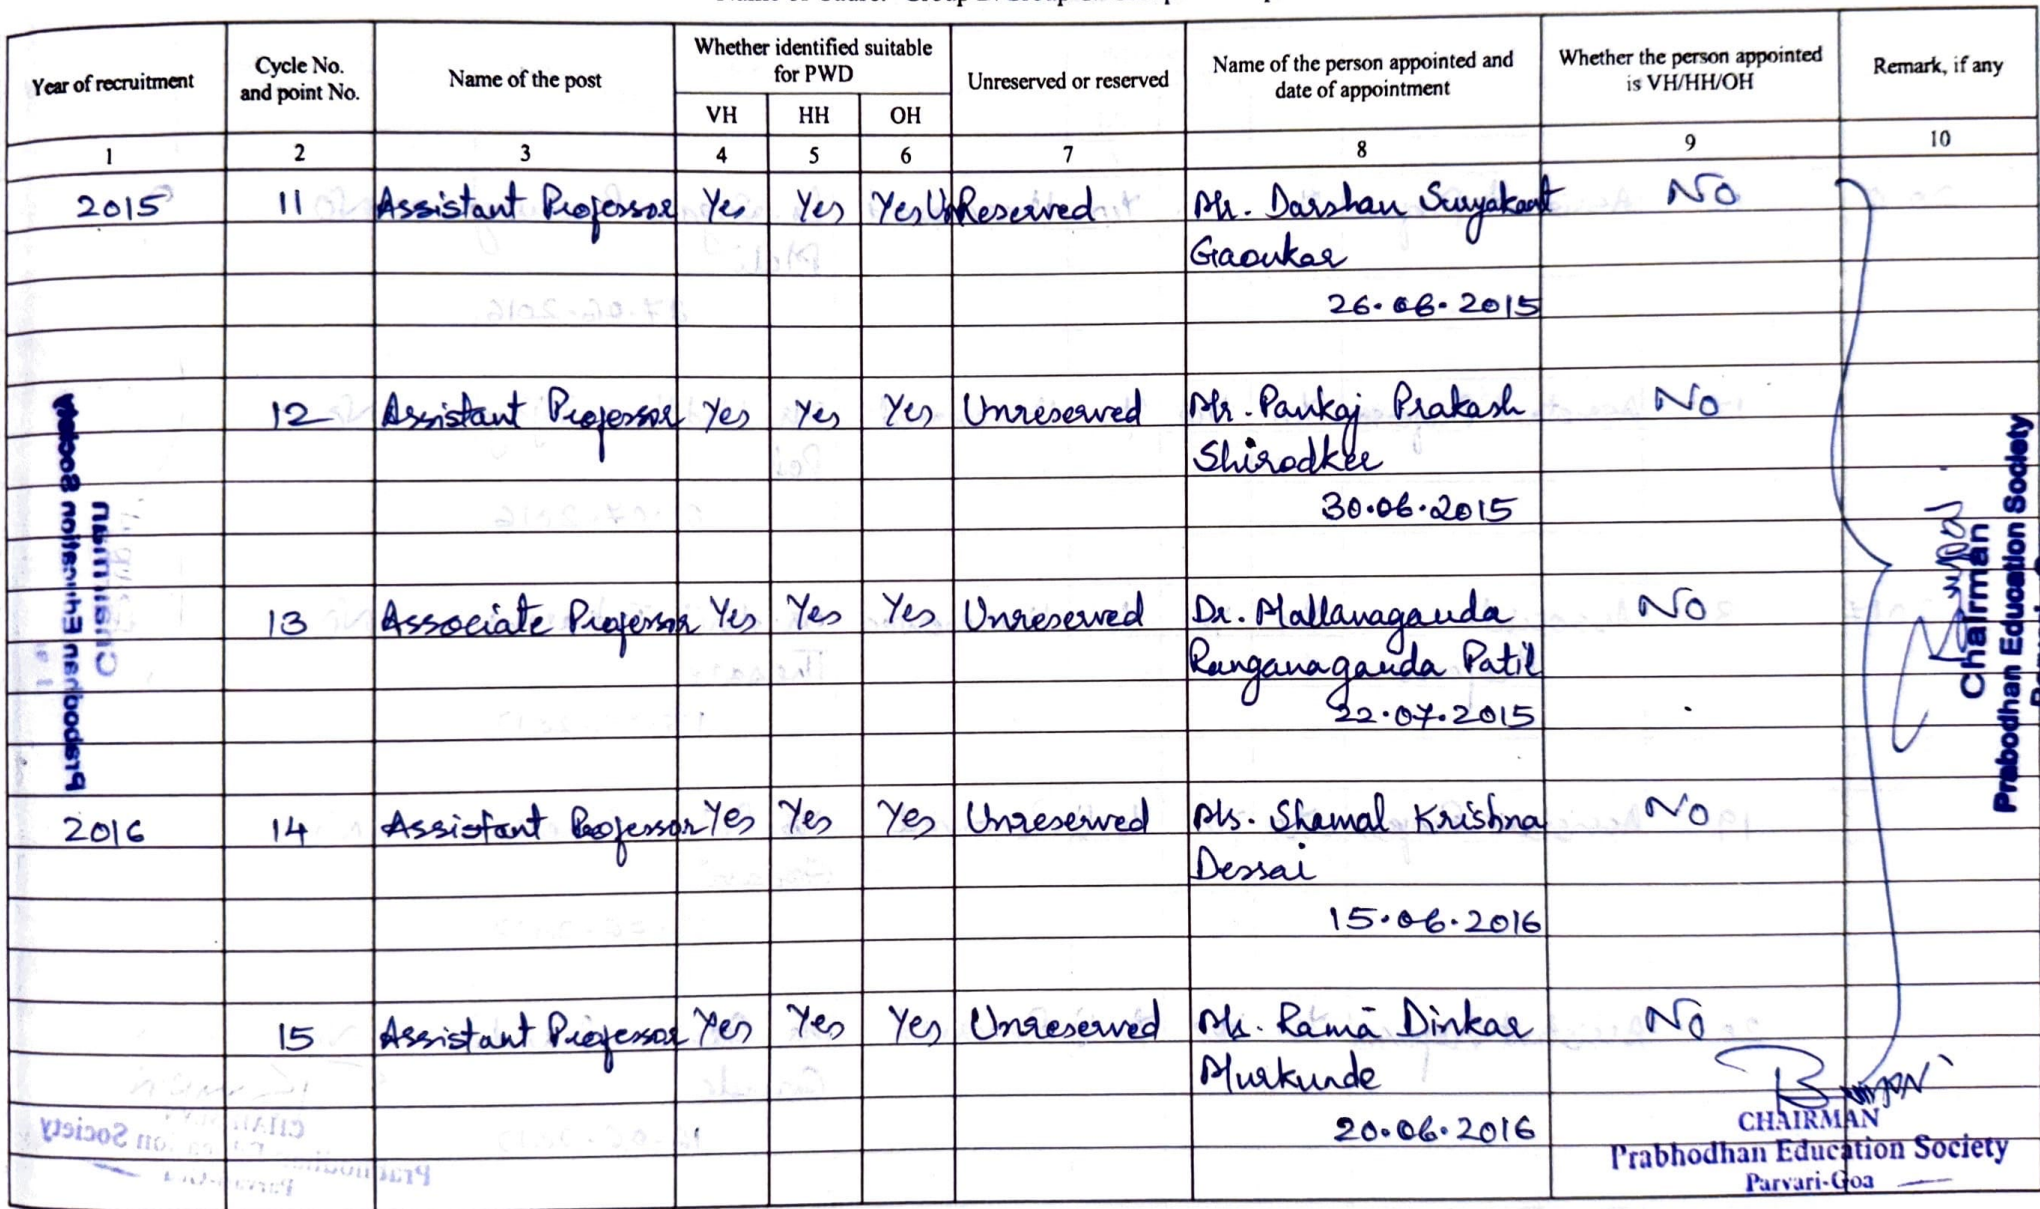 Year of recruitment
Cycle No. and point No.
Name of the post
Whether identified suitable for PWD
VH HH OH
Unreserved or reserved
Name of the person appointed and date of appointment
Whether the person appointed is VH/HH/OH
Remark, if any
1 2 3 4 5 6 7 8 9 10
2015 11 Assistant Professor Yes Yes Yes UnReserved Mr. Darshan Suryakant No
Gaonkar
26.06.2015
12 Assistant Professor Yes Yes Yes Unreserved Mr. Pankaj Prakash No
Shirodkar
30.06.2015
13 Associate Professor Yes Yes Yes Unreserved Dr. Mallanagauda No
Ranganagauda Patil
22.07.2015
2016 14 Assistant Professor Yes Yes Yes Unreserved Ms. Shamal Krishna No
Dessai
15.06.2016
15 Assistant Professor Yes Yes Yes Unreserved Ms. Rama Dinkar No
Murkunde
20.06.2016
Chairman
Prabodhan Education Society
CHAIRMAN
Prabhodhan Education Society
Parvari-Goa